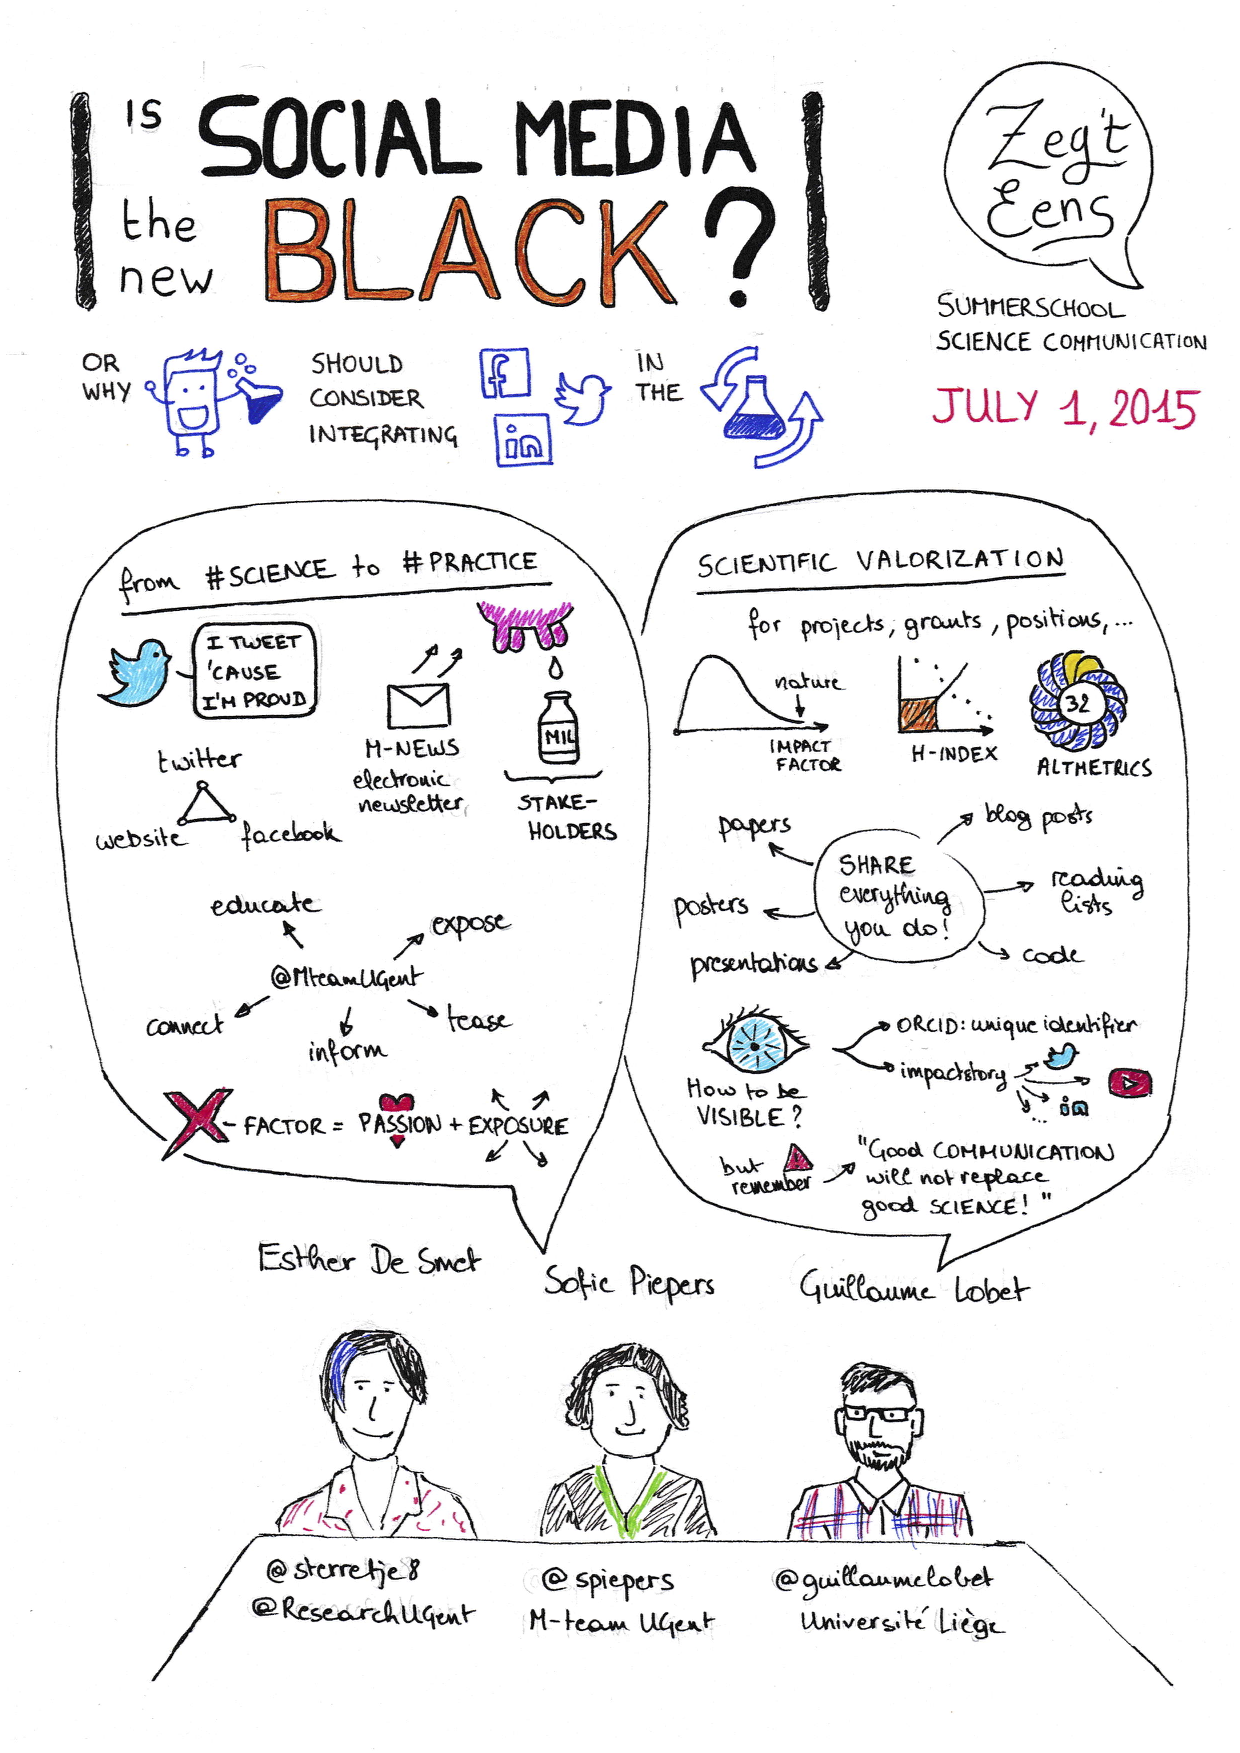 IS SOCIAL MEDIA
the new BLACK?
Zeg't
Eens
SUMMERSCHOOL
SCIENCE COMMUNICATION
JULY 1, 2015
OR
WHY
SHOULD
CONSIDER
INTEGRATING
f
in
IN
THE
from #SCIENCE to #PRACTICE
I TWEET
'CAUSE
I'M PROUD
M-NEWS
electronic
newsletter
MIL
STAKE-
HOLDERS
twitter
website
facebook
educate
expose
@MteamUGent
connect
tease
inform
X-FACTOR = PASSION + EXPOSURE
SCIENTIFIC VALORIZATION
for projects, grants, positions,...
nature
IMPACT
FACTOR
H-INDEX
32
ALTMETRICS
papers
blog posts
SHARE
everything
you do!
reading
lists
posters
presentations
code
How to be
VISIBLE?
ORCID: unique identifier
impactstory
in
...
but
remember
"Good COMMUNICATION
will not replace
good SCIENCE!"
Esther De Smet
Sofie Piepers
Guillaume Lobet
@sterretje8
@ResearchUGent
@spiepers
M-team UGent
@guillaumelobet
Université Liège